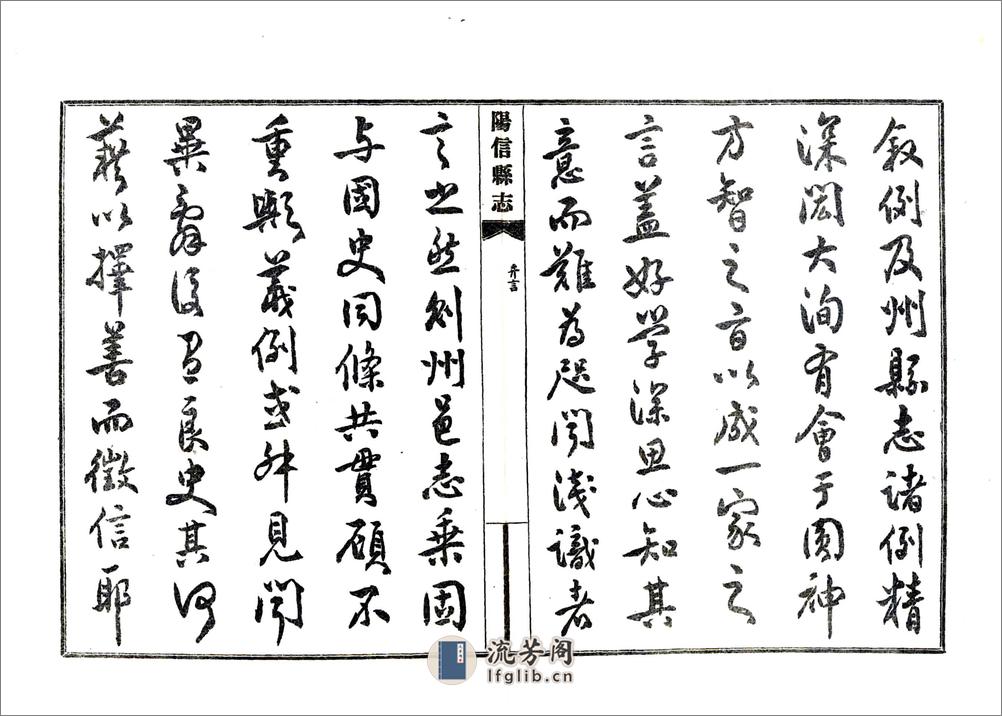 敘例及州縣志諸例精
深閎大洵有會于圓神
方智之旨以成一家之
言蓋好學深思心知其
意而難為淺聞淺識者
陽信縣志
弁言
言之然則州邑志乘固
与國史同條共貫顧不
重歟義例或舛見聞
異辭後有良史其何
藉以擇善而徵信耶
流芳阁
lfglib.cn